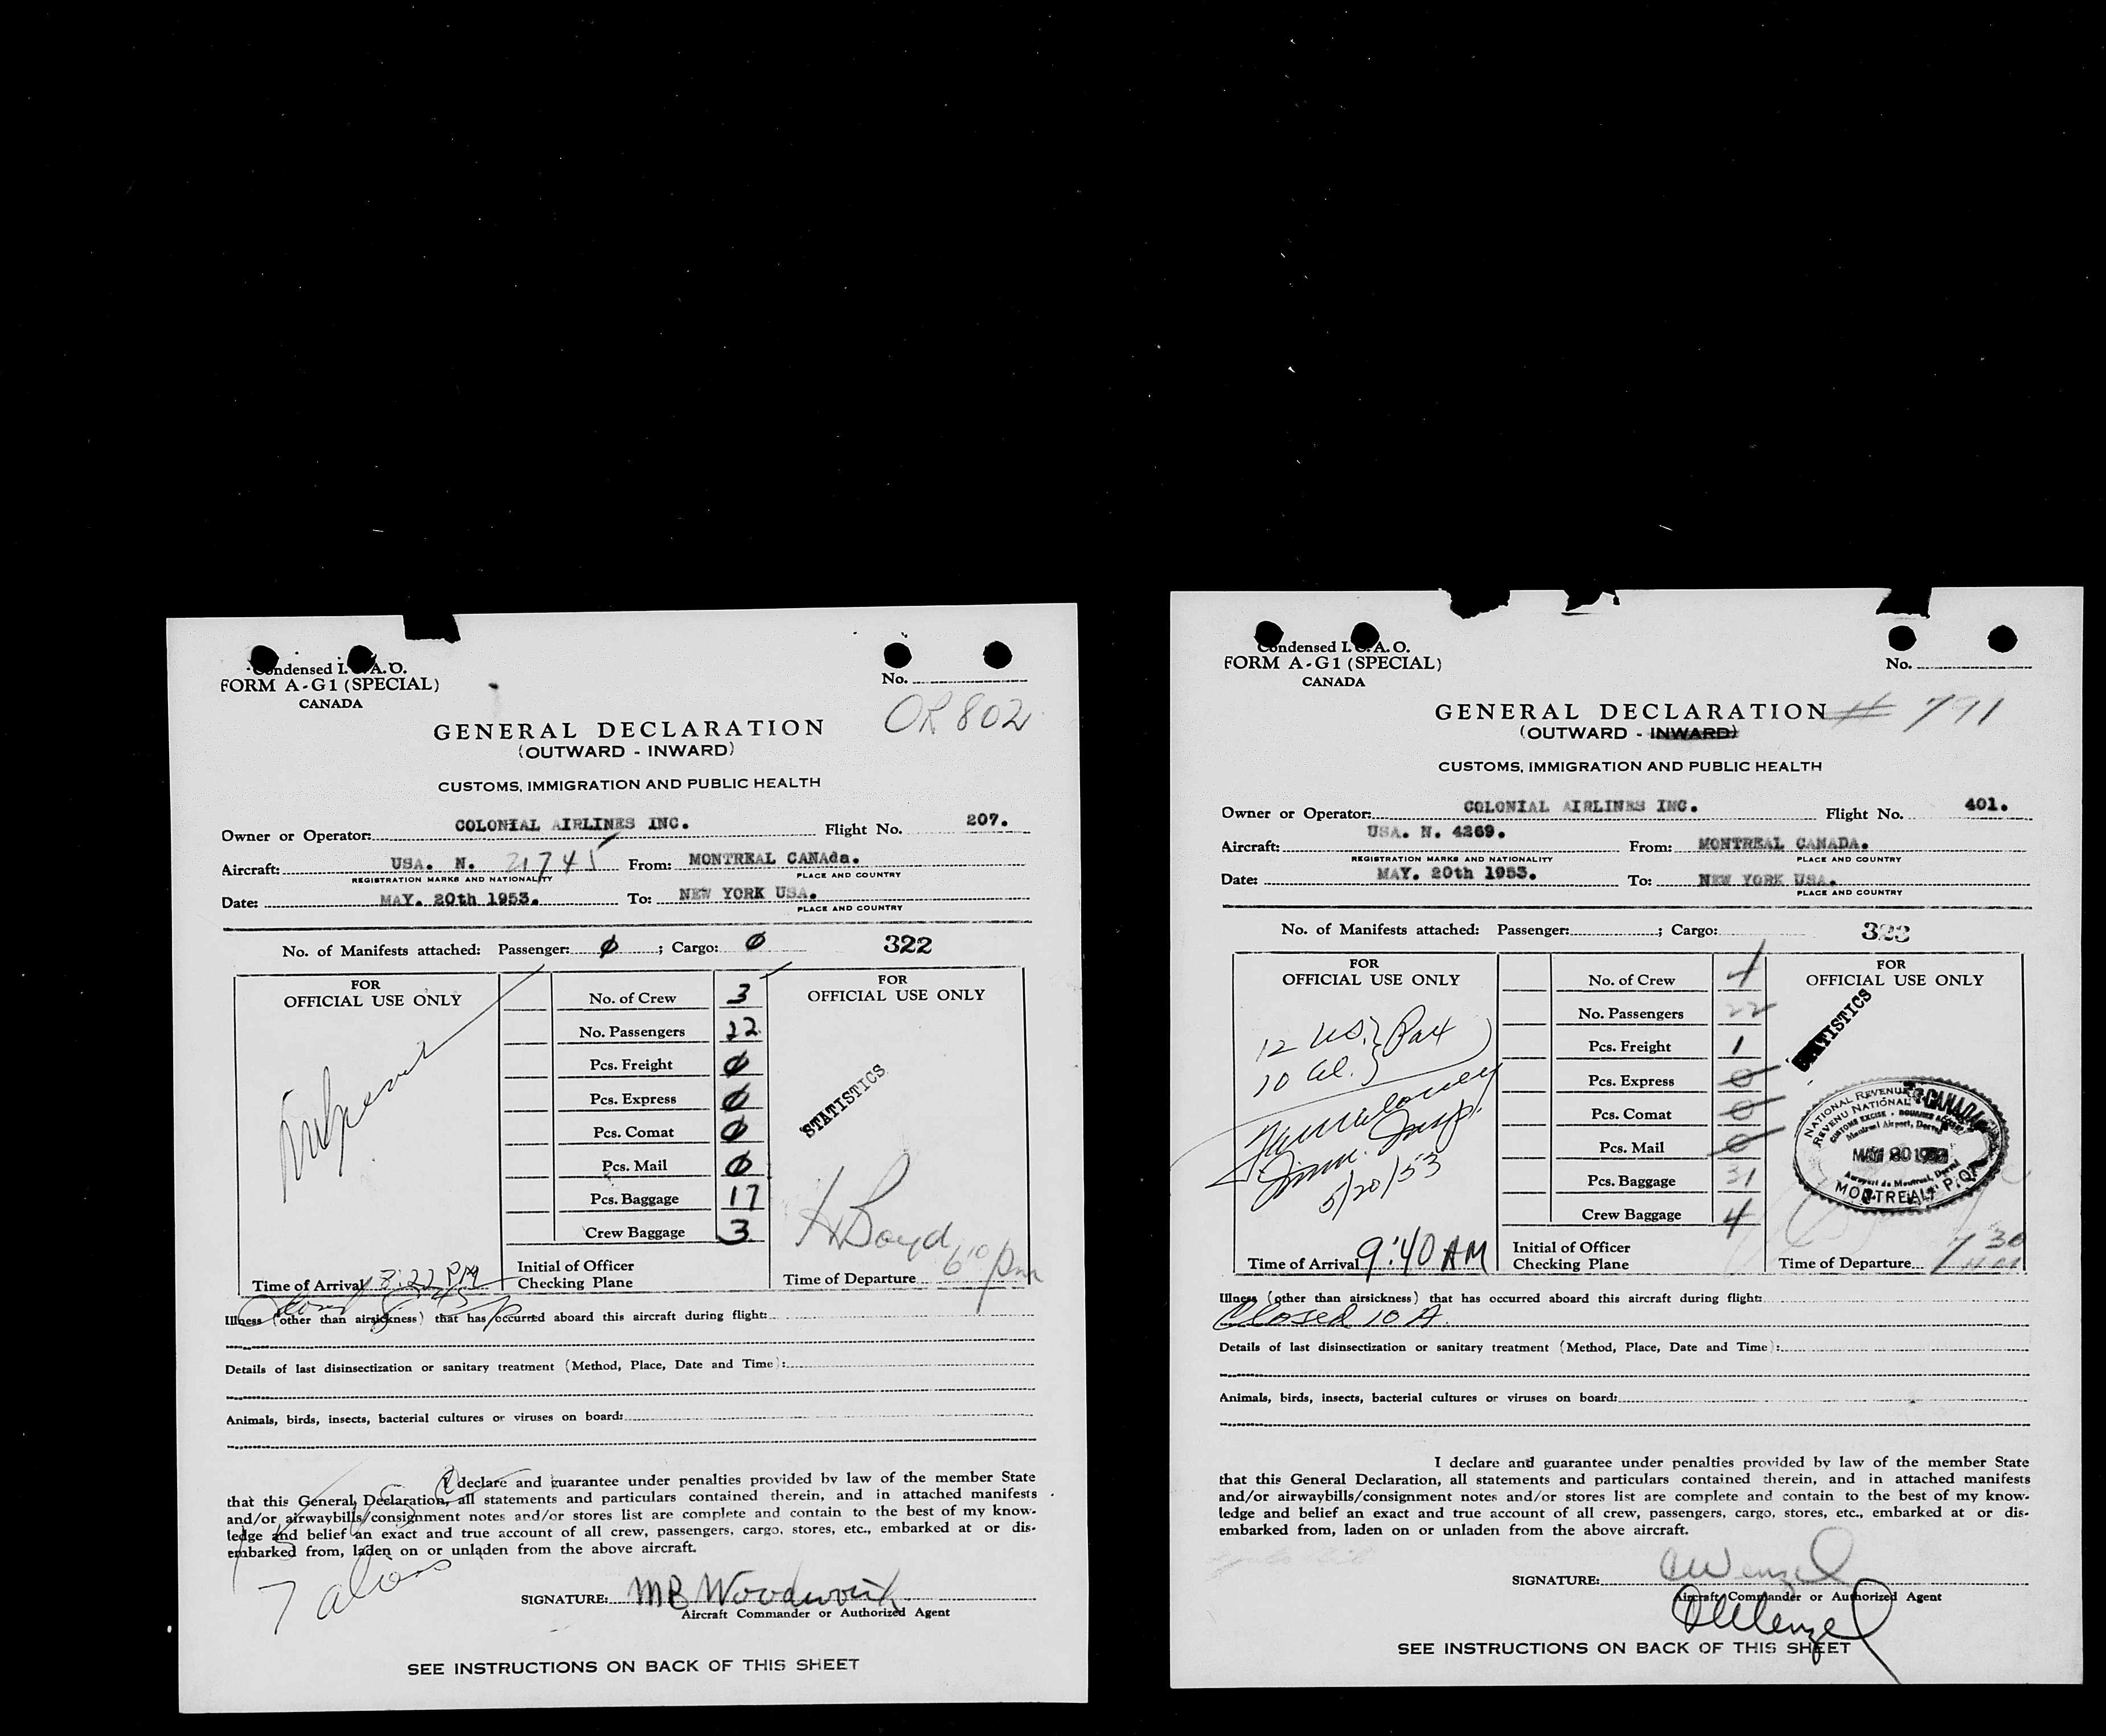 Condensed I.C.A.O.
FORM A-G1 (SPECIAL)
CANADA
No.
OR 802
GENERAL DECLARATION
(OUTWARD - INWARD)
CUSTOMS, IMMIGRATION AND PUBLIC HEALTH
Owner or Operator: COLONIAL AIRLINES INC. Flight No. 207.
Aircraft: USA. N. 21745 From: MONTREAL CANAda.
REGISTRATION MARKS AND NATIONALITY PLACE AND COUNTRY
Date: MAY. 20th 1953. To: NEW YORK USA.
PLACE AND COUNTRY
No. of Manifests attached: Passenger: 0 ; Cargo: 0 322
FOR
OFFICIAL USE ONLY
No. of Crew 3
No. Passengers 22
Pcs. Freight 0
Pcs. Express 0
Pcs. Comat 0
Pcs. Mail 0
Pcs. Baggage 17
Crew Baggage 3
FOR
OFFICIAL USE ONLY
STATISTICS
H Boyd
Time of Arrival 8:22 PM
Initial of Officer
Checking Plane
Time of Departure 6 10 pm
Illness (other than airsickness) that has occurred aboard this aircraft during flight:
Details of last disinsectization or sanitary treatment (Method, Place, Date and Time):
Animals, birds, insects, bacterial cultures or viruses on board:
I declare and guarantee under penalties provided by law of the member State
that this General Declaration, all statements and particulars contained therein, and in attached manifests
and/or airwaybills/consignment notes and/or stores list are complete and contain to the best of my know-
ledge and belief an exact and true account of all crew, passengers, cargo, stores, etc., embarked at or dis-
embarked from, laden on or unladen from the above aircraft.
7 aliens
SIGNATURE: MB Woodworth
Aircraft Commander or Authorized Agent
SEE INSTRUCTIONS ON BACK OF THIS SHEET
Condensed I.C.A.O.
FORM A-G1 (SPECIAL)
CANADA
No.
GENERAL DECLARATION # 791
(OUTWARD - INWARD)
CUSTOMS, IMMIGRATION AND PUBLIC HEALTH
Owner or Operator: COLONIAL AIRLINES INC. Flight No. 401.
Aircraft: USA. N. 4269. From: MONTREAL CANADA.
REGISTRATION MARKS AND NATIONALITY PLACE AND COUNTRY
Date: MAY. 20th 1953. To: NEW YORK USA.
PLACE AND COUNTRY
No. of Manifests attached: Passenger: ; Cargo: 323
FOR
OFFICIAL USE ONLY
12 US. } Pax
10 al. }
Imm. Insp.
5/20/53
No. of Crew 4
No. Passengers 22
Pcs. Freight 1
Pcs. Express 0
Pcs. Comat 0
Pcs. Mail 0
Pcs. Baggage 31
Crew Baggage 4
FOR
OFFICIAL USE ONLY
STATISTICS
NATIONAL REVENUE CANADA
REVENU NATIONAL
CUSTOMS EXCISE
Montreal Airport, Dorval
MAY 20 1953
Aeroport de Montreal, Dorval
MONTREAL, P.Q.
Time of Arrival 9:40 AM
Initial of Officer
Checking Plane
Time of Departure 7 30
Illness (other than airsickness) that has occurred aboard this aircraft during flight:
Closed 10 A
Details of last disinsectization or sanitary treatment (Method, Place, Date and Time):
Animals, birds, insects, bacterial cultures or viruses on board:
I declare and guarantee under penalties provided by law of the member State
that this General Declaration, all statements and particulars contained therein, and in attached manifests
and/or airwaybills/consignment notes and/or stores list are complete and contain to the best of my know-
ledge and belief an exact and true account of all crew, passengers, cargo, stores, etc., embarked at or dis-
embarked from, laden on or unladen from the above aircraft.
SIGNATURE: A Wenzel
Aircraft Commander or Authorized Agent
A Wenzel
SEE INSTRUCTIONS ON BACK OF THIS SHEET